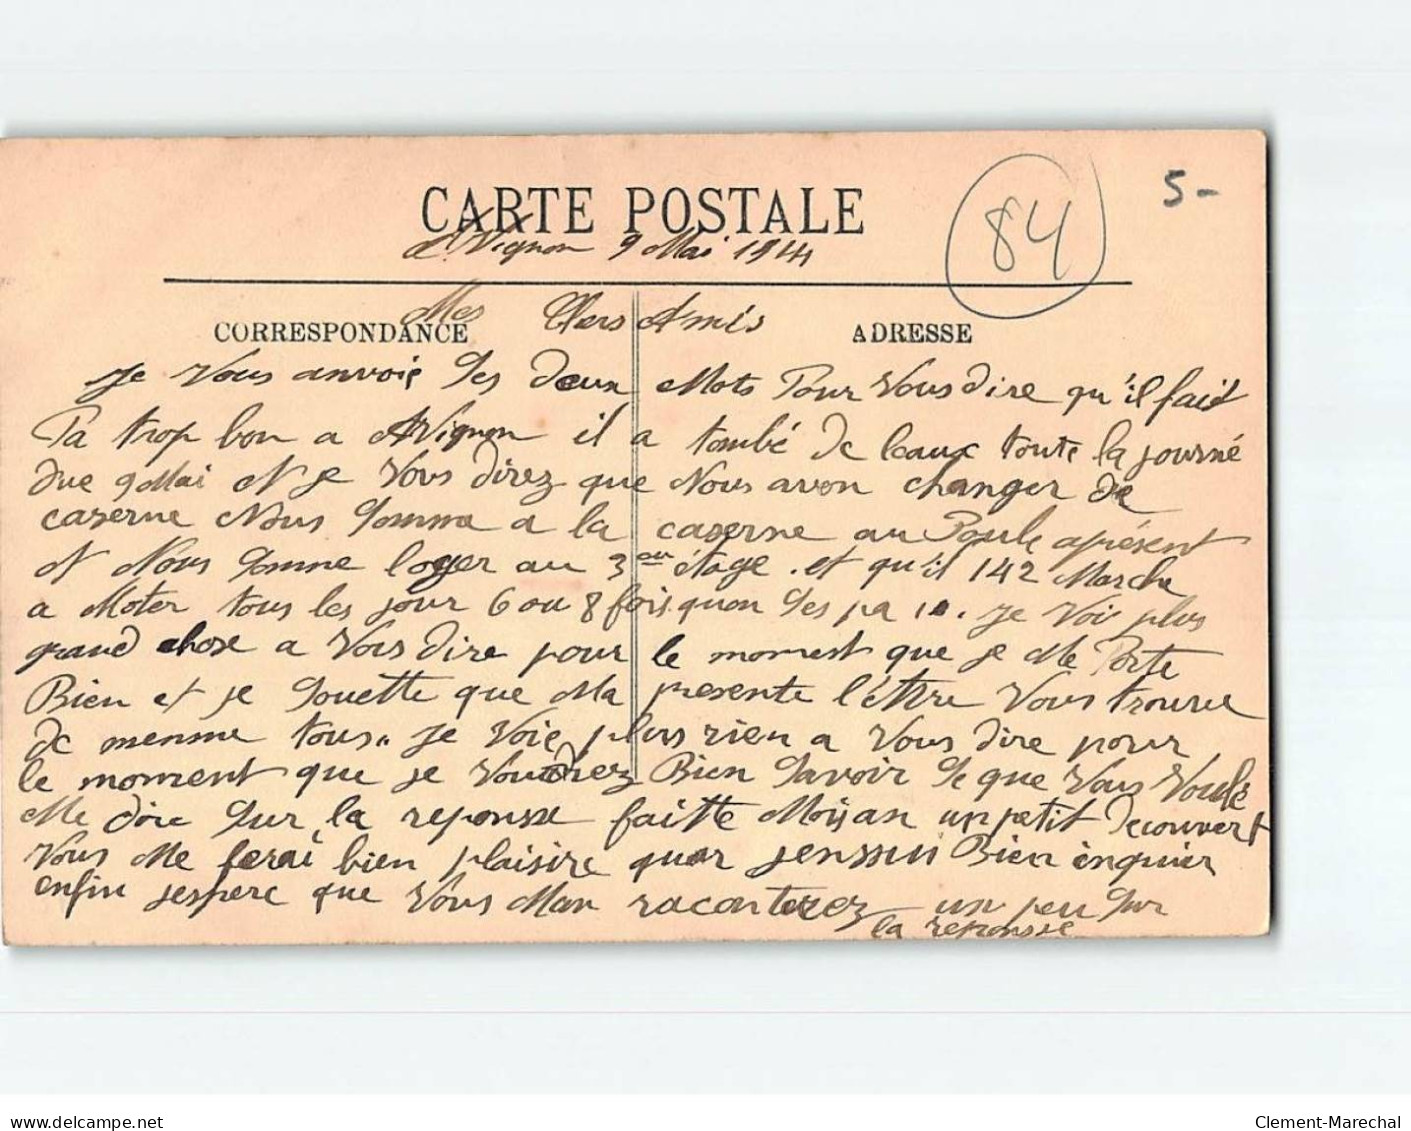 CARTE POSTALE
84
5-
AVignon 9 Mai 1914
Mes Chers Amis
CORRESPONDANCE
ADRESSE
Je Vous anvoie Ses deux Mots Pour Vous dire qu'il fait
Pa trop bon a AVignon il a tombé de leaux toute la journé
due 9 Mai et je Vous direz que Nous avon changer de
caserne Nous Somme a la caserne au Poule aprésent
et Nous Somme loger au 3em étage. et qu'il 142 Marche
a Moter tous les jour 6 ou 8 fois. quon Ses pa . Je Voi plus
grand chose a Vous dire pour le moment que je Me Porte
Bien et je Souette que Ma presente lettre Vous trouve
de menme tous. Je Voie plus rien a Vous dire pour
le moment que je Voudrez Bien Savoir Se que Vous Voulé
Me dire Sur la reponse faitte Moi un petit decouvert
Vous Me ferai bien plaisire quar jenssui Bien enquier
enfin jespere que Vous Man raconterez un peu Sur
la reponsse
delcampe.net
Clement-Marechal